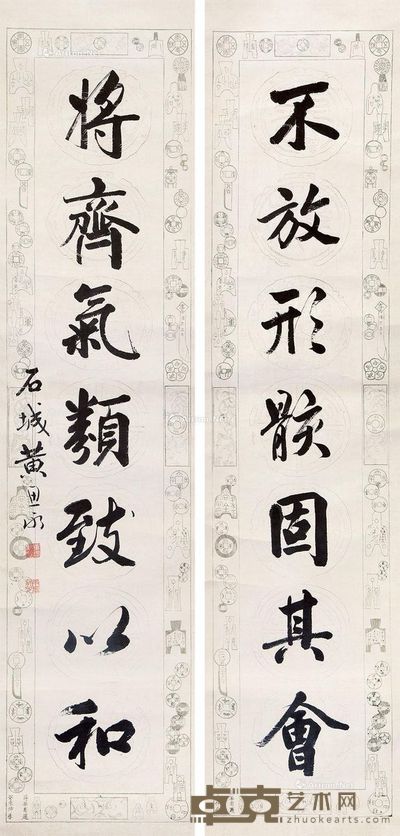 不放形骸固其會
將齊氣類致以和
石城黄思永
卓克艺术网
www.zhuokearts.com